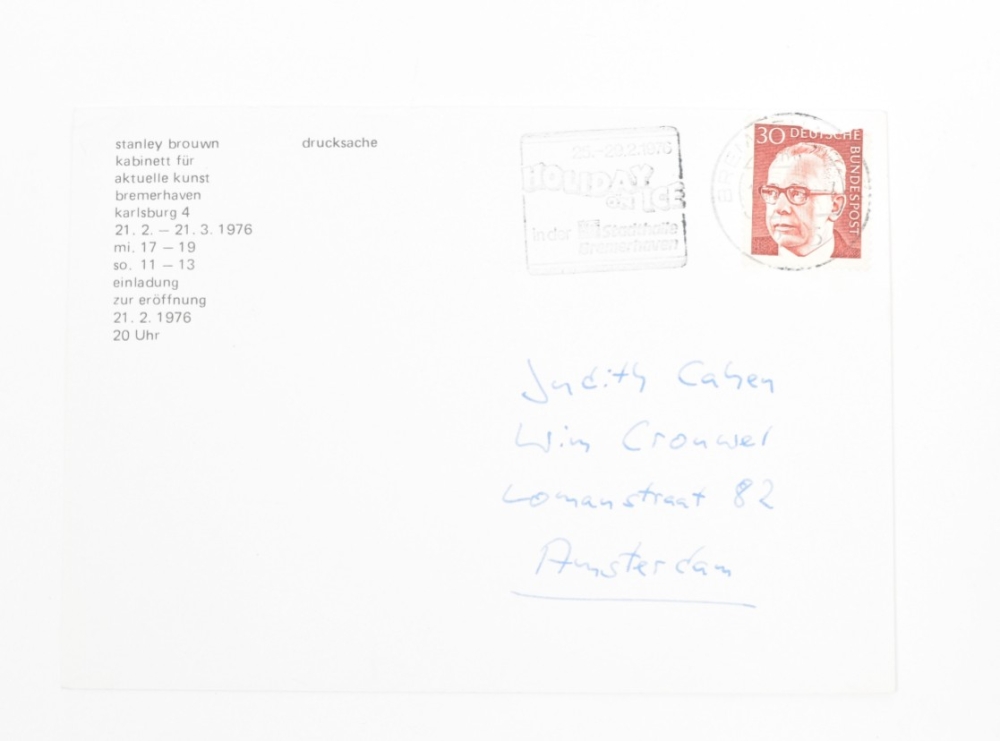 stanley brouwn
kabinett für
aktuelle kunst
bremerhaven
karlsburg 4
21. 2. – 21. 3. 1976
mi. 17 – 19
so. 11 – 13
einladung
zur eröffnung
21. 2. 1976
20 Uhr
drucksache
25.–29.2.1976
HOLIDAY
ON ICE
in der Stadthalle
Bremerhaven
30 DEUTSCHE
BUNDESPOST
Judith Cahen
Wim Crouwel
Lomanstraat 82
Amsterdam